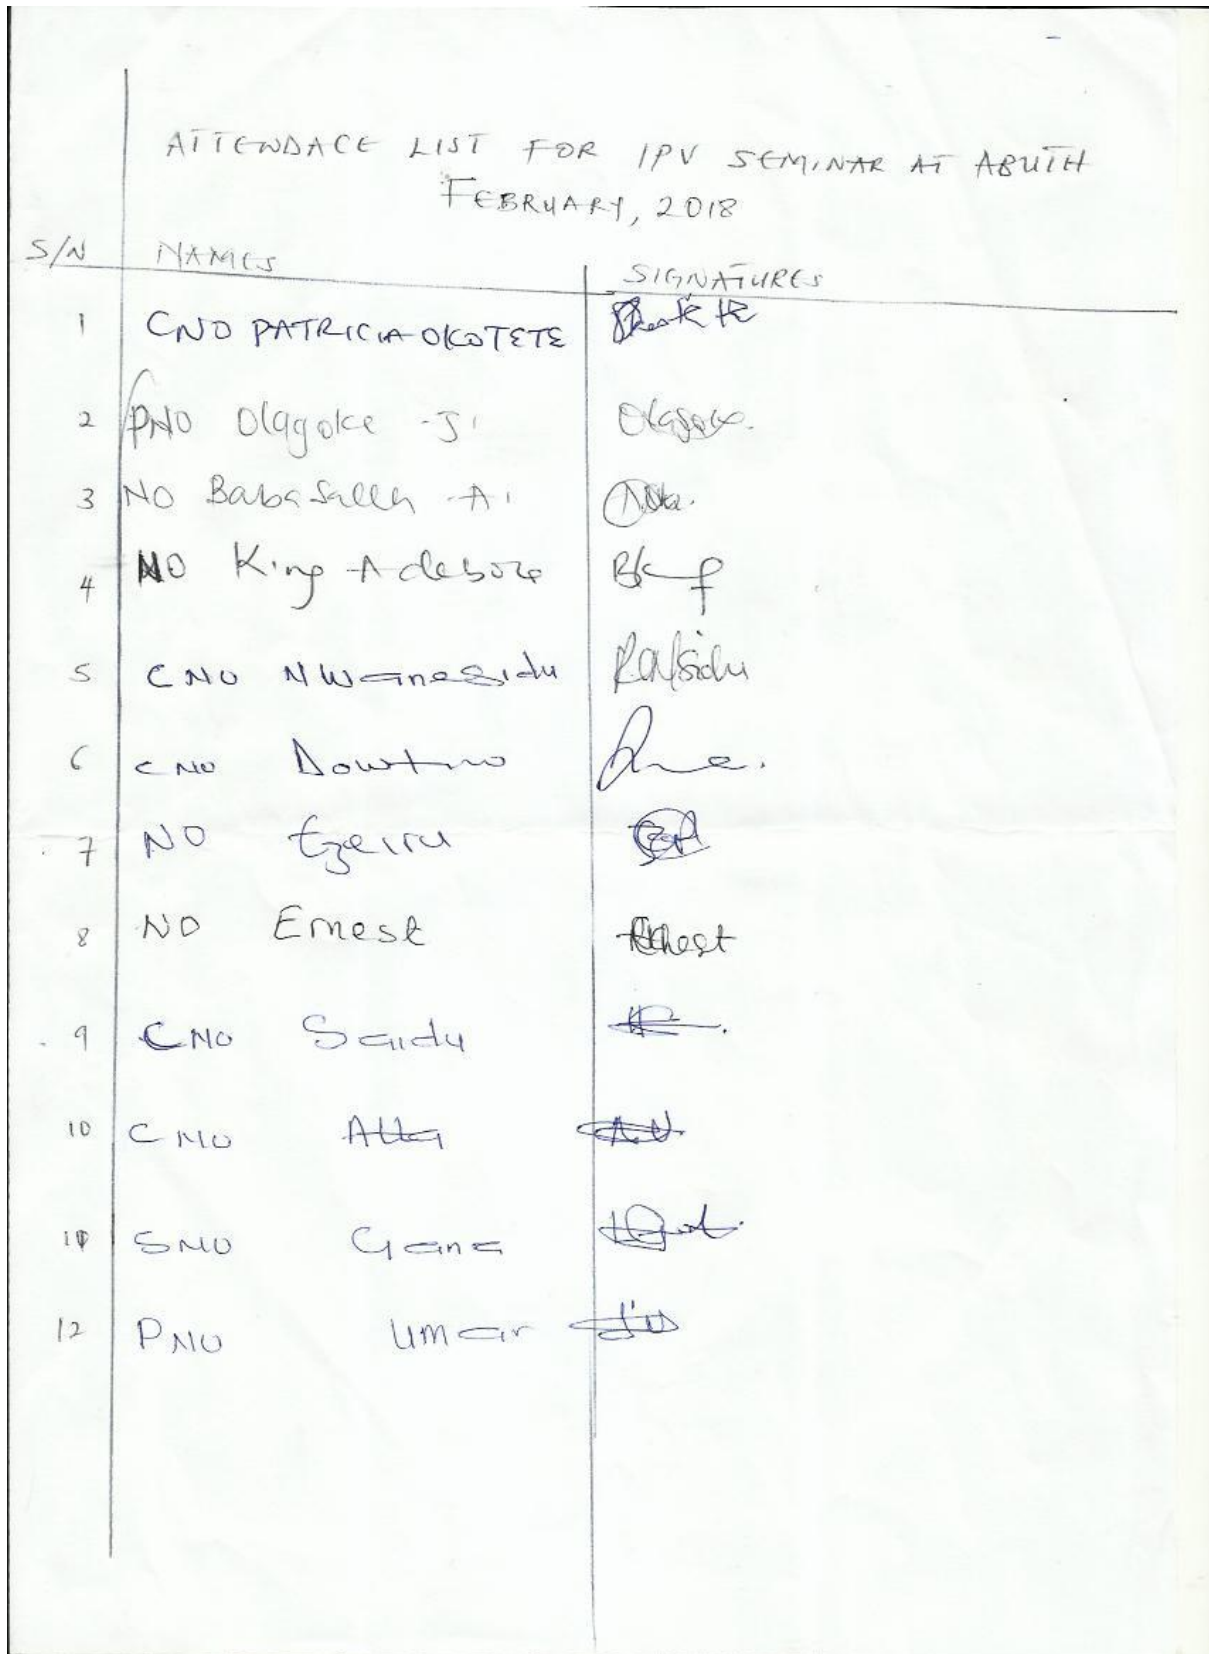 ATTENDACE LIST FOR IPV SEMINAR AT ABUTH
FEBRUARY, 2018
S/N NAMES SIGNATURES
1 CNO PATRICIA OKOTETE
2 PNO Olagoke J. Olagoke.
3 NO BabaSalla A.
4 NO King-Adebore
5 CNO Nwanesidu
6 CNO
7 NO Ezeiru
8 NO Ernest Ernest
9 CNO Saidu
10 CNO Atta
11 SNO Gana
12 PNO Umar